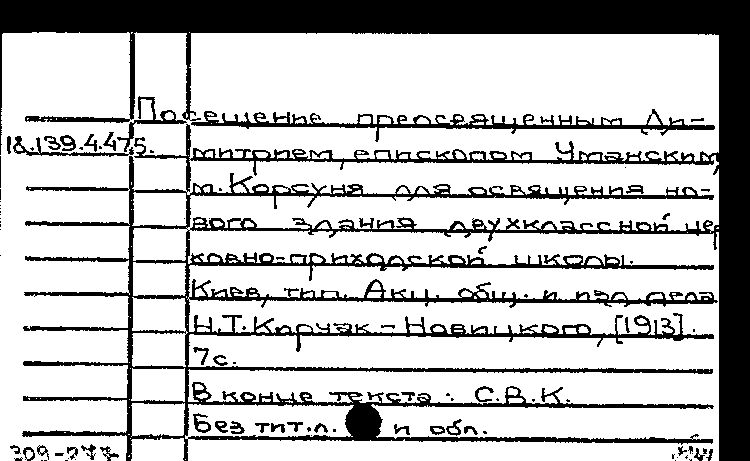 Посещение преосвященным Ди-
18.139.4.475.
митрием, епископом Уманским,
м. Корсуня для освящения но-
вого здания двухклассной цер
ковно-приходской школы.
Киев, тип. Акц. общ. и изд. дела
Н.Т. Корчак-Новицкого, [1913].
7с.
В конце текста: С.В.К.
Без тит.л. и обл.
309-277